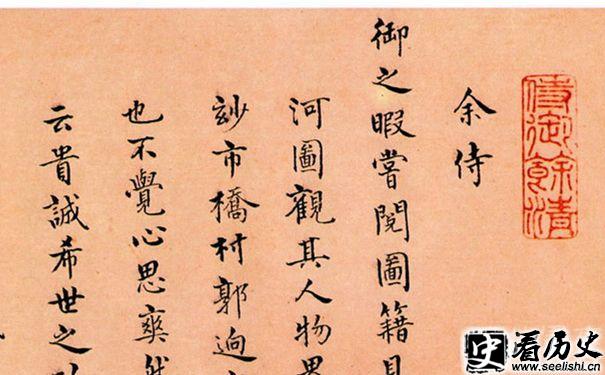 侍御餘清
余侍
御之暇嘗閱圖籍見
河圖觀其人物界
玅市橋村郭迥
也不覺心思爽然
云貴誠希世之
史 看历史
www.seelishi.cn